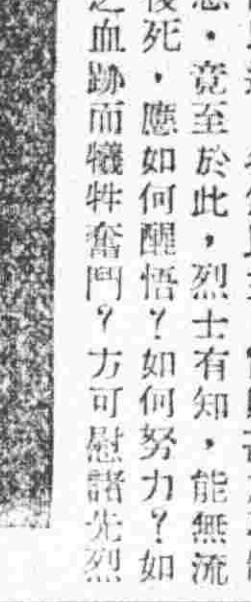 竟至於此，烈士有知，能無流
死，應如何醒悟？如何努力？如
血跡而犧牲奮鬥？方可慰諸先烈